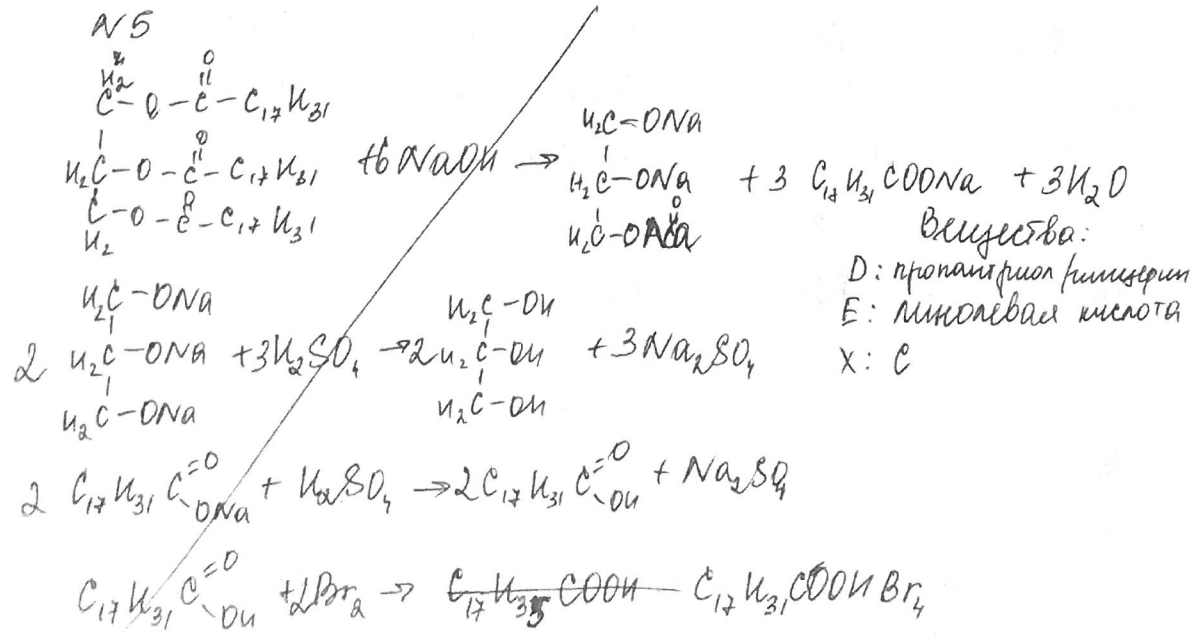 N5
H₂C-O-C(=O)-C₁₇H₃₁
H₂C-O-C(=O)-C₁₇H₃₁ +6NaOH → H₂C-ONa H₂C-ONa H₂C-ONa + 3 C₁₇H₃₁COONa + 3H₂O
C-O-C(=O)-C₁₇H₃₁
H₂
Вещества:
D: пропантриол/глицерин
E: линолевая кислота
X: C
H₂C-ONa H₂C-OH
2 H₂C-ONa +3H₂SO₄ → 2H₂C-OH + 3Na₂SO₄
H₂C-ONa H₂C-OH
2 C₁₇H₃₁C(=O)ONa + H₂SO₄ → 2C₁₇H₃₁C(=O)OH + Na₂SO₄
C₁₇H₃₁C(=O)OH +2Br₂ → C₁₇H₃₅COOH C₁₇H₃₁COOHBr₄